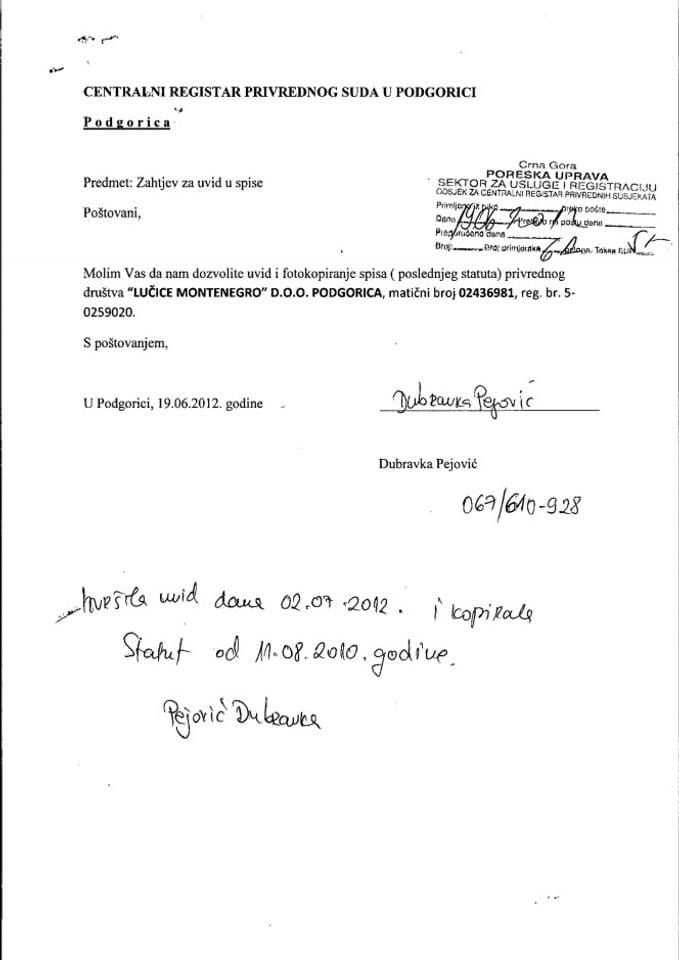 CENTRALNI REGISTAR PRIVREDNOG SUDA U PODGORICI
Podgorica
Crna Gora
PORESKA UPRAVA
SEKTOR ZA USLUGE I REGISTRACIJU
ODSJEK ZA CENTRALNI REGISTAR PRIVREDNIH SUBJEKATA
Predmet: Zahtjev za uvid u spise
Poštovani,
Primljeno preko pošte
Dana Predato na poštu dana
Preporučeno dana
Broj Broj primjeraka
Molim Vas da nam dozvolite uvid i fotokopiranje spisa ( poslednjeg statuta) privrednog
društva “LUČICE MONTENEGRO” D.O.O. PODGORICA, matični broj 02436981, reg. br. 5-
0259020.
S poštovanjem,
U Podgorici, 19.06.2012. godine
Dubravka Pejović
Dubravka Pejović
067/610-928
Izvršila uvid dana 02.07.2012. i kopirala
Statut od 11.08.2010. godine.
Pejović Dubravka